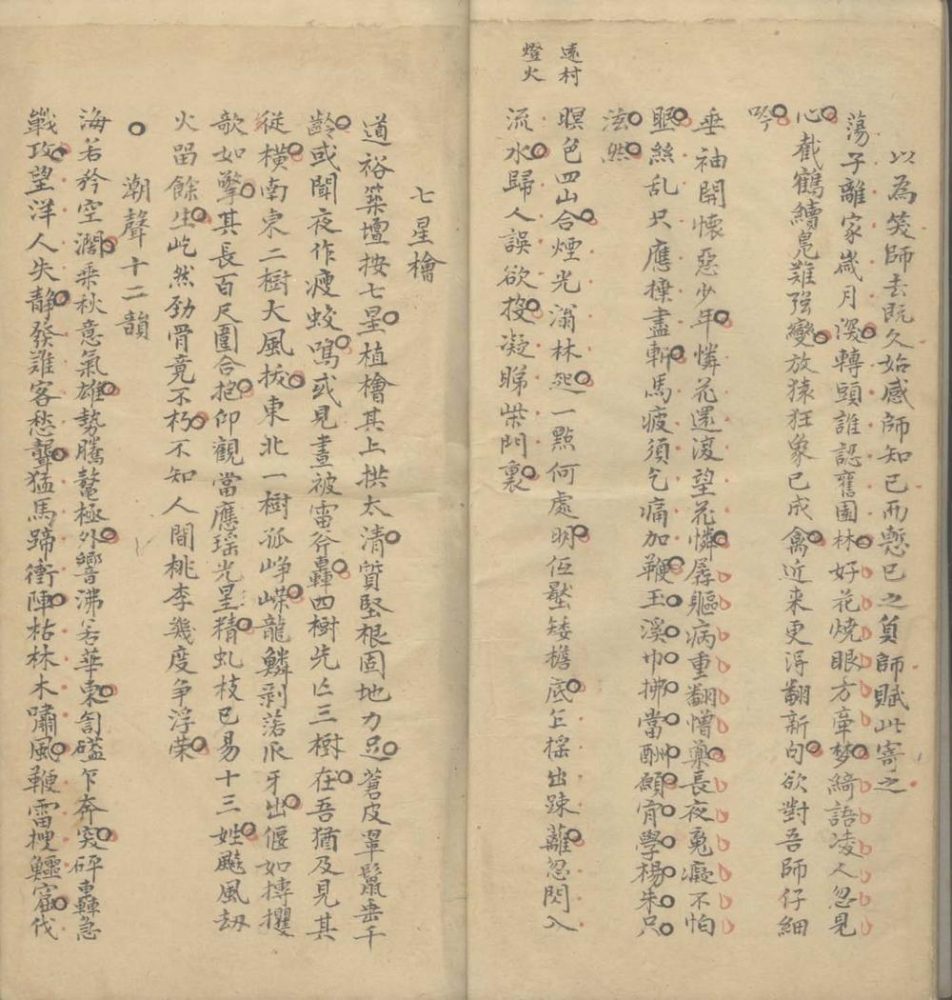 以為笑師去既久始感師知己而慙己之負師賦此寄之
蕩子離家歲月深轉頭誰認舊園林好花燒眼方牽梦綺語凌人忽見
心截鶴續鳧難強變放猿狂象已成禽近来更淂翻新句欲對吾師仔細
吟
垂袖開懷惡少年憐花還復望花憐孱軀病重翻憎藥長夜兎癡不怕
眠絲乱只應捶盡斬馬疲須乞痛加鞭玉溪巾拂當酬願肯學楊朱只
泫然
遠村
燈火
暝色四山合煙光滃林一點何處明伍壓矮檐底乍搖出踈籬忽閃入
流水歸人誤欲投凝睇柴門裏
七星檜
道裕築壇按七星植檜其上拱太清質堅根固地力足蒼皮翠鬣垂千
齡或聞夜作瘦蛟鳴或見晝被雷斧轟四樹先亾三樹在吾猶及見其
従橫南東二樹大風拔東北一樹孤峥嶸龍鱗剥落爪牙出偃如搏攫
欹如擎其長百尺圍合抱仰觀當應瑤光星精虬枝已易十三姓颷風劫
火留餘生屹然勁骨竟不朽不知人間桃李幾度争浮荣
潮聲十二韻
海若矜空濶乘秋意氣雄勢騰鼇極外響沸若華東訇磕乍奔突砰轟急
戦攻望洋人失静發難客愁聾猛馬蹄衝陣枯林木嘯風鞭雷搜鱷窟伐